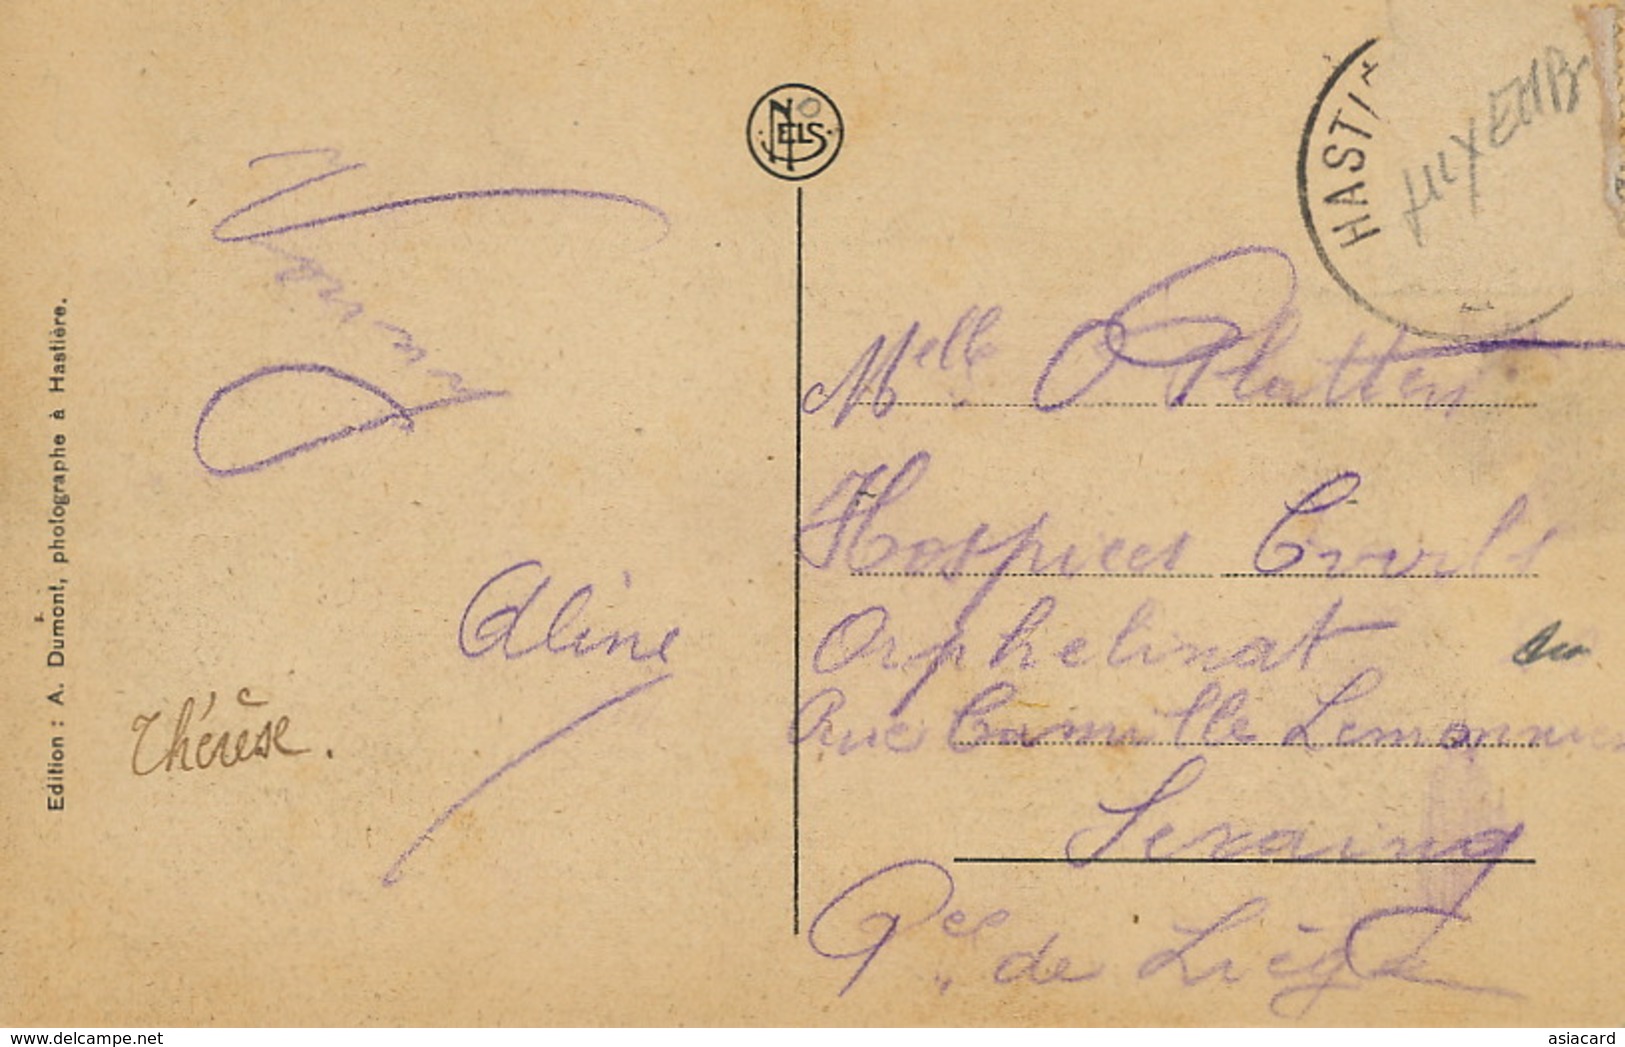 Edition : A. Dumont, photographe à Hastière.
NELS
HASTI
Aline
Thérèse.
Melle O Platteus
Hospices Civils
Orphelinat
Rue Camille Lemonnier
Seraing
Pce de Liège
delcampe.net
asiacard